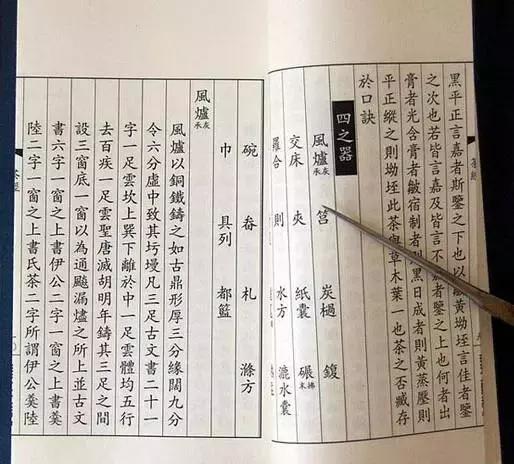 茶經
黑平正言嘉者斯鑒之下也以皺黃坳垤言佳者鑒
之次也若皆言嘉及皆言不嘉者鑒之上也何者出
膏者光含膏者皺宿制者則黑日成者則黃蒸壓則
平正縱之則坳垤此茶與草木葉一也茶之否臧存
於口訣
四之器
風爐灰承 筥 炭檛 鍑
交床 夾 紙囊 碾拂末
羅合 則 水方 漉水囊
碗 畚 札 滌方
巾 具列 都籃
風爐灰承
風爐以銅鐵鑄之如古鼎形厚三分緣闊九分
令六分虛中致其圬墁凡三足古文書二十一
字一足雲坎上巽下離於中一足雲體均五行
去百疾一足雲聖唐滅胡明年鑄其三足之間
設三窗底一窗以為通飈漏燼之所上並古文
書六字一窗之上書伊公二字一窗之上書羹
陸二字一窗之上書氏茶二字所謂伊公羹陸
茶經